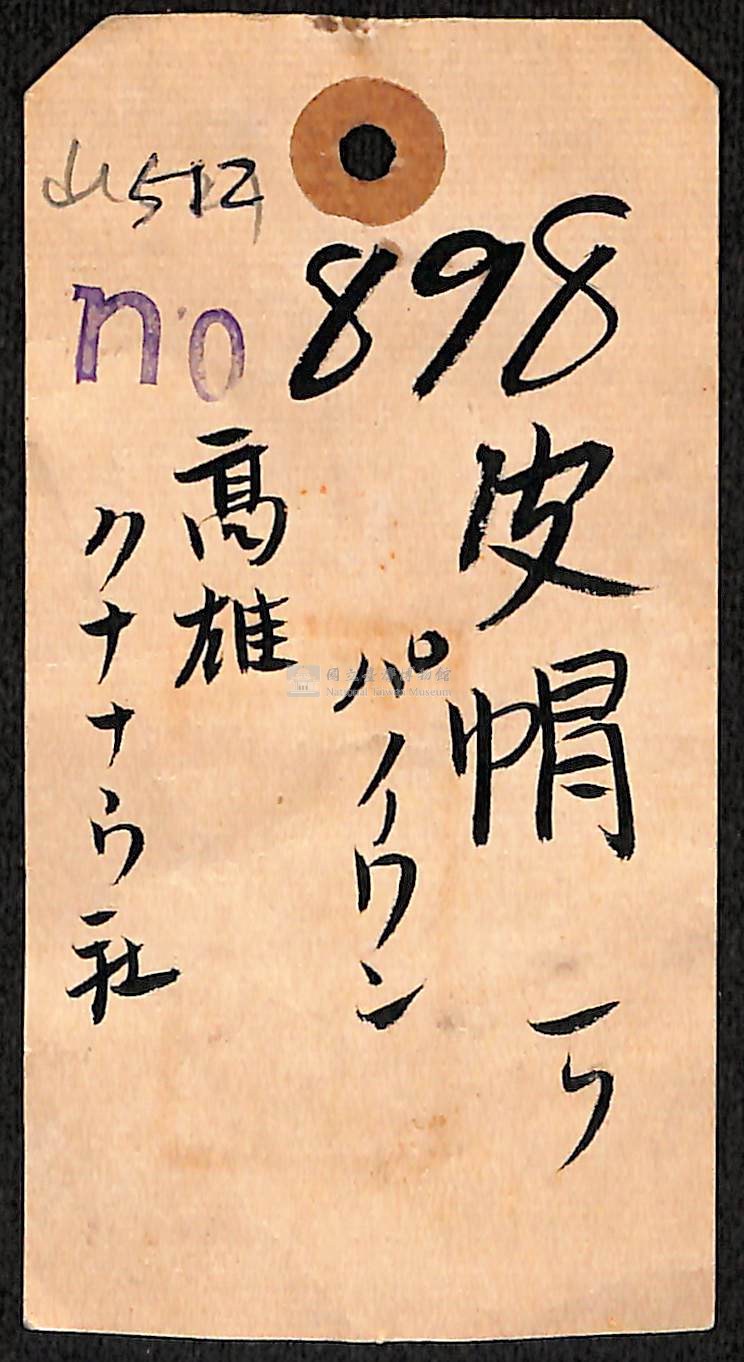 山512
no 898
皮帽 一ケ
パイワン
高雄
クナナウ社
國立臺灣博物館
National Taiwan Museum